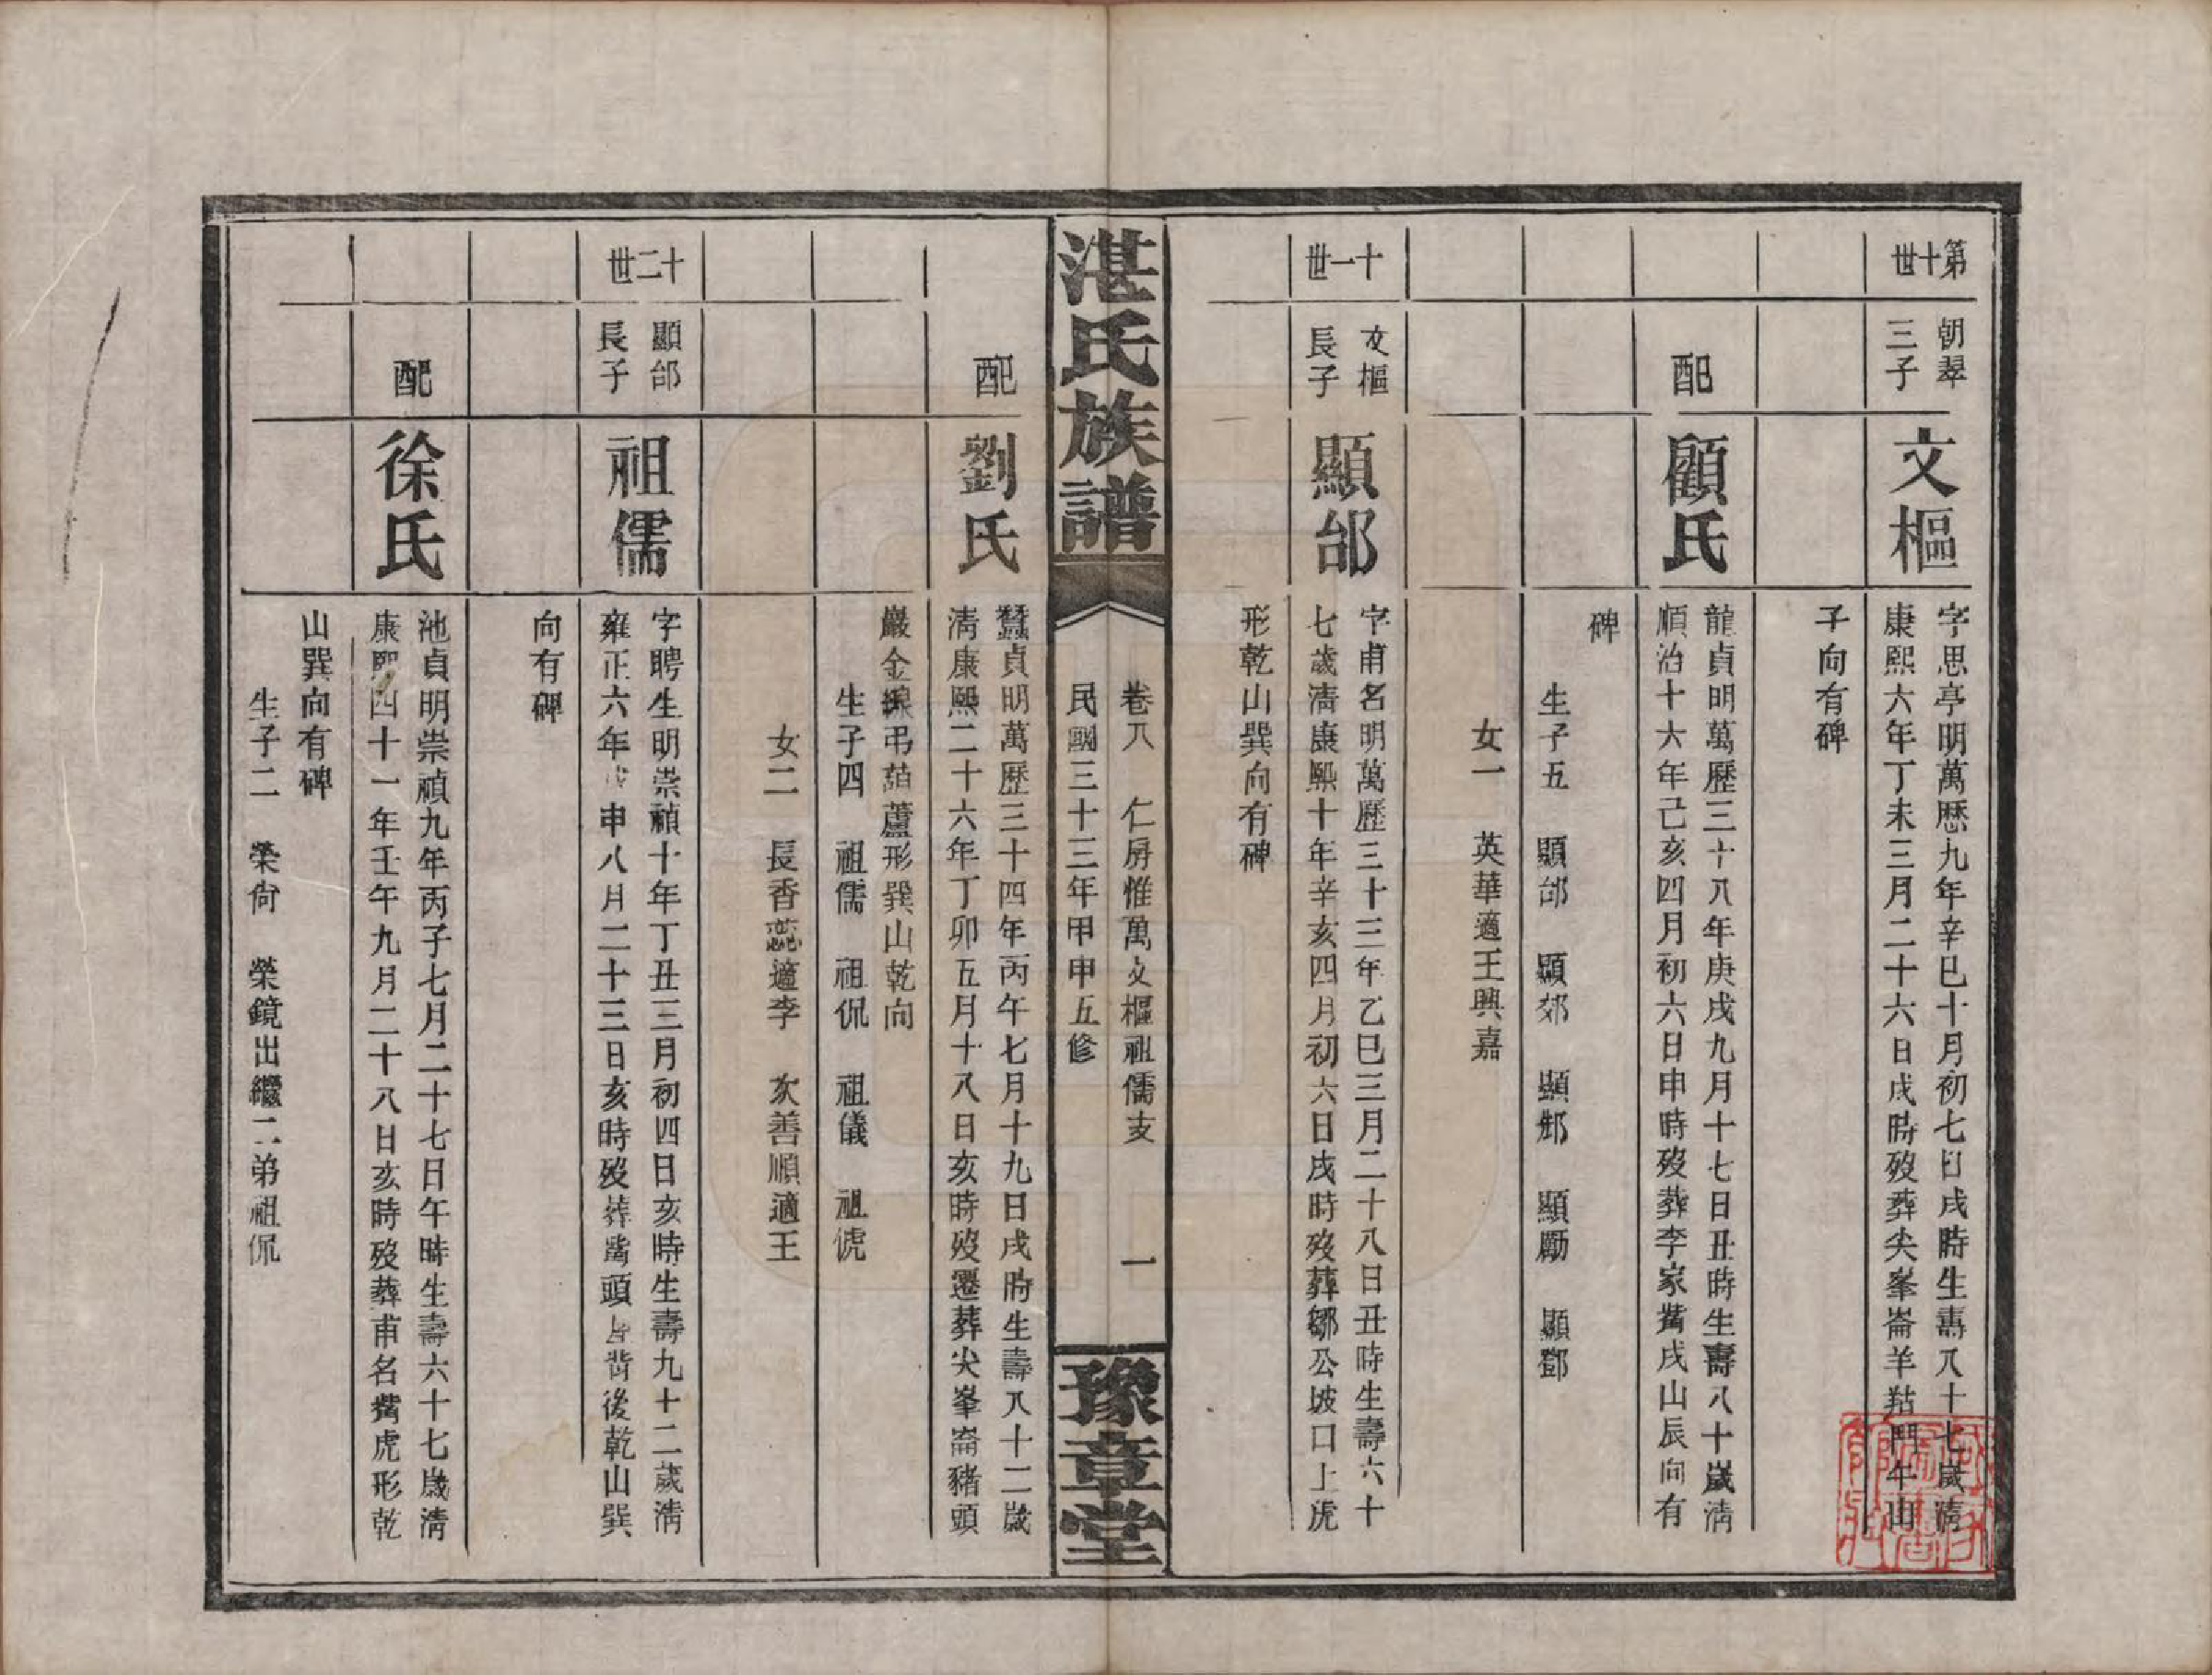 第十世
朝翠
三子
文樞
字思亭明萬歷九年辛巳十月初七日戌時生壽八十七歲淸
康熙六年丁未三月二十六日戌時歿葬尖峯崙羊牯鬥午山
子向有碑
配
顧氏
龍貞明萬歷三十八年庚戌九月十七日丑時生壽八十歲淸
順治十六年己亥四月初六日申時歿葬李家嘴戌山辰向有
碑
生子五 顯邰 顯郊 顯邺 顯勵 顯鄧
女一 英華適王興嘉
十一世
文樞
長子
顯邰
字甫名明萬歷三十三年乙巳三月二十八日丑時生壽六十
七歲淸康熙十年辛亥四月初六日戌時歿葬鄒公坡口上虎
形乾山巽向有碑
湛氏族譜
卷八 仁房惟萬文樞祖儒支 一
民國三十三年甲申五修
豫章堂
配
劉氏
蠶貞明萬歷三十四年丙午七月十九日戌時生壽八十二歲
淸康熙二十六年丁卯五月十八日亥時歿遷葬尖峯崙豬頭
巖金線弔葫蘆形巽山乾向
生子四 祖儒 祖侃 祖儀 祖俿
女二 長香蕊適李 次善順適王
十二世
顯邰
長子
祖儒
字聘生明崇禎十年丁丑三月初四日亥時生壽九十二歲淸
雍正六年戊申八月二十三日亥時歿葬嘴頭屋背後乾山巽
向有碑
配
徐氏
池貞明崇禎九年丙子七月二十七日午時生壽六十七歲淸
康熙四十一年壬午九月二十八日亥時歿葬甫名嘴虎形乾
山巽向有碑
生子二 榮尙 榮鏡出繼二弟祖侃